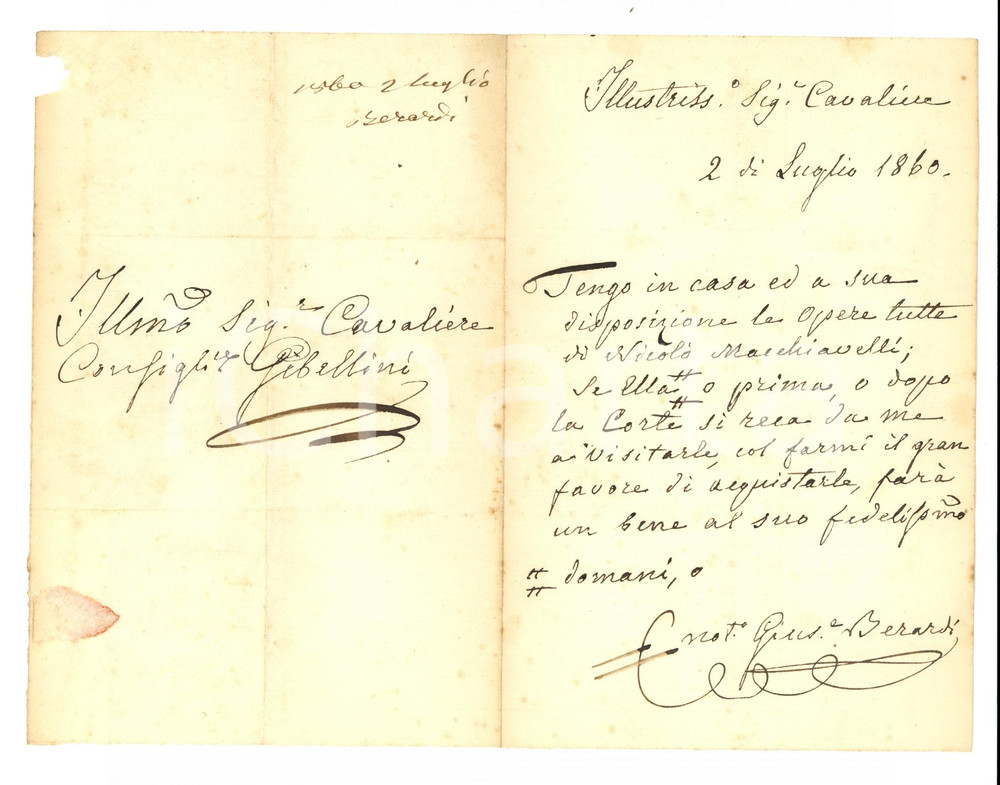 1860 2 Luglio
Berardi
Illmo Sig.re Cavaliere
Consiglre Gibellini
Illustriss.o Sig.r Cavaliere
2 di Luglio 1860.
Tengo in casa ed a sua
disposizione le Opere tutte
di Nicolò Macchiavelli;
Se Ella # o prima, o dopo
la Corte # si reca da me
a visitarle, col farmi il gran
favore di acquistarle, farà
un bene al suo fedelissmo
# domani, o
not.o Gius.e Berardi